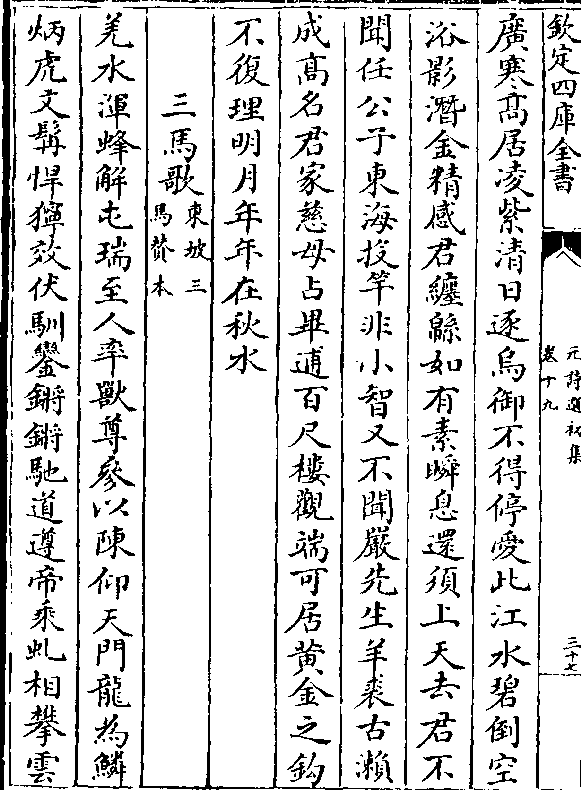 欽定四庫全書
元詩選初集
卷十九
三十七
廣寒高居凌紫清日逐烏御不得停愛此江水碧倒空
浴影潛金精感君纏緜如有素瞬息還須上天去君不
聞任公子東海投竿非小智又不聞嚴先生羊裘古瀨
成高名君家慈母占畢逋百尺樓觀端可居黄金之鈎
不復理明月年年在秋水
三馬歌東坡三馬賛本
羌水渾蜂解屯瑞至人率獸尊參以陳仰天門龍為鱗
炳虎文髯悍獰效伏馴鑾鏘鏘馳道遵帝乘虬相攀雲